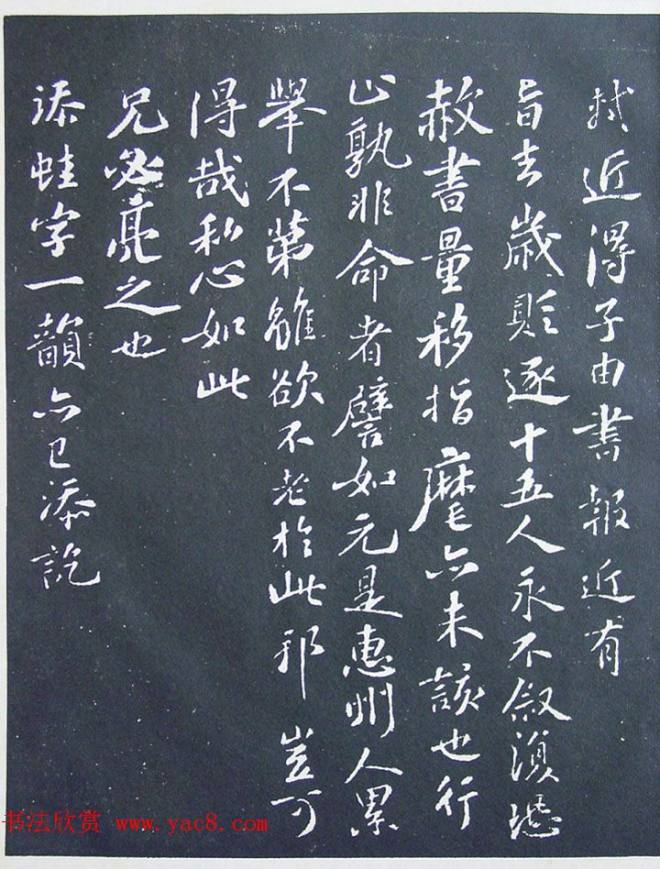 軾近得子由書報近有
旨去歲貶逐十五人永不叙恐
赦書量移指麾亦未該也行
止孰非命者譬如元是惠州人累
舉不第雖欲不老於此邪豈可
得哉私心如此
兄必亮之也
添蛙字一韻亦已添訖
书法欣赏 www.yac8.com